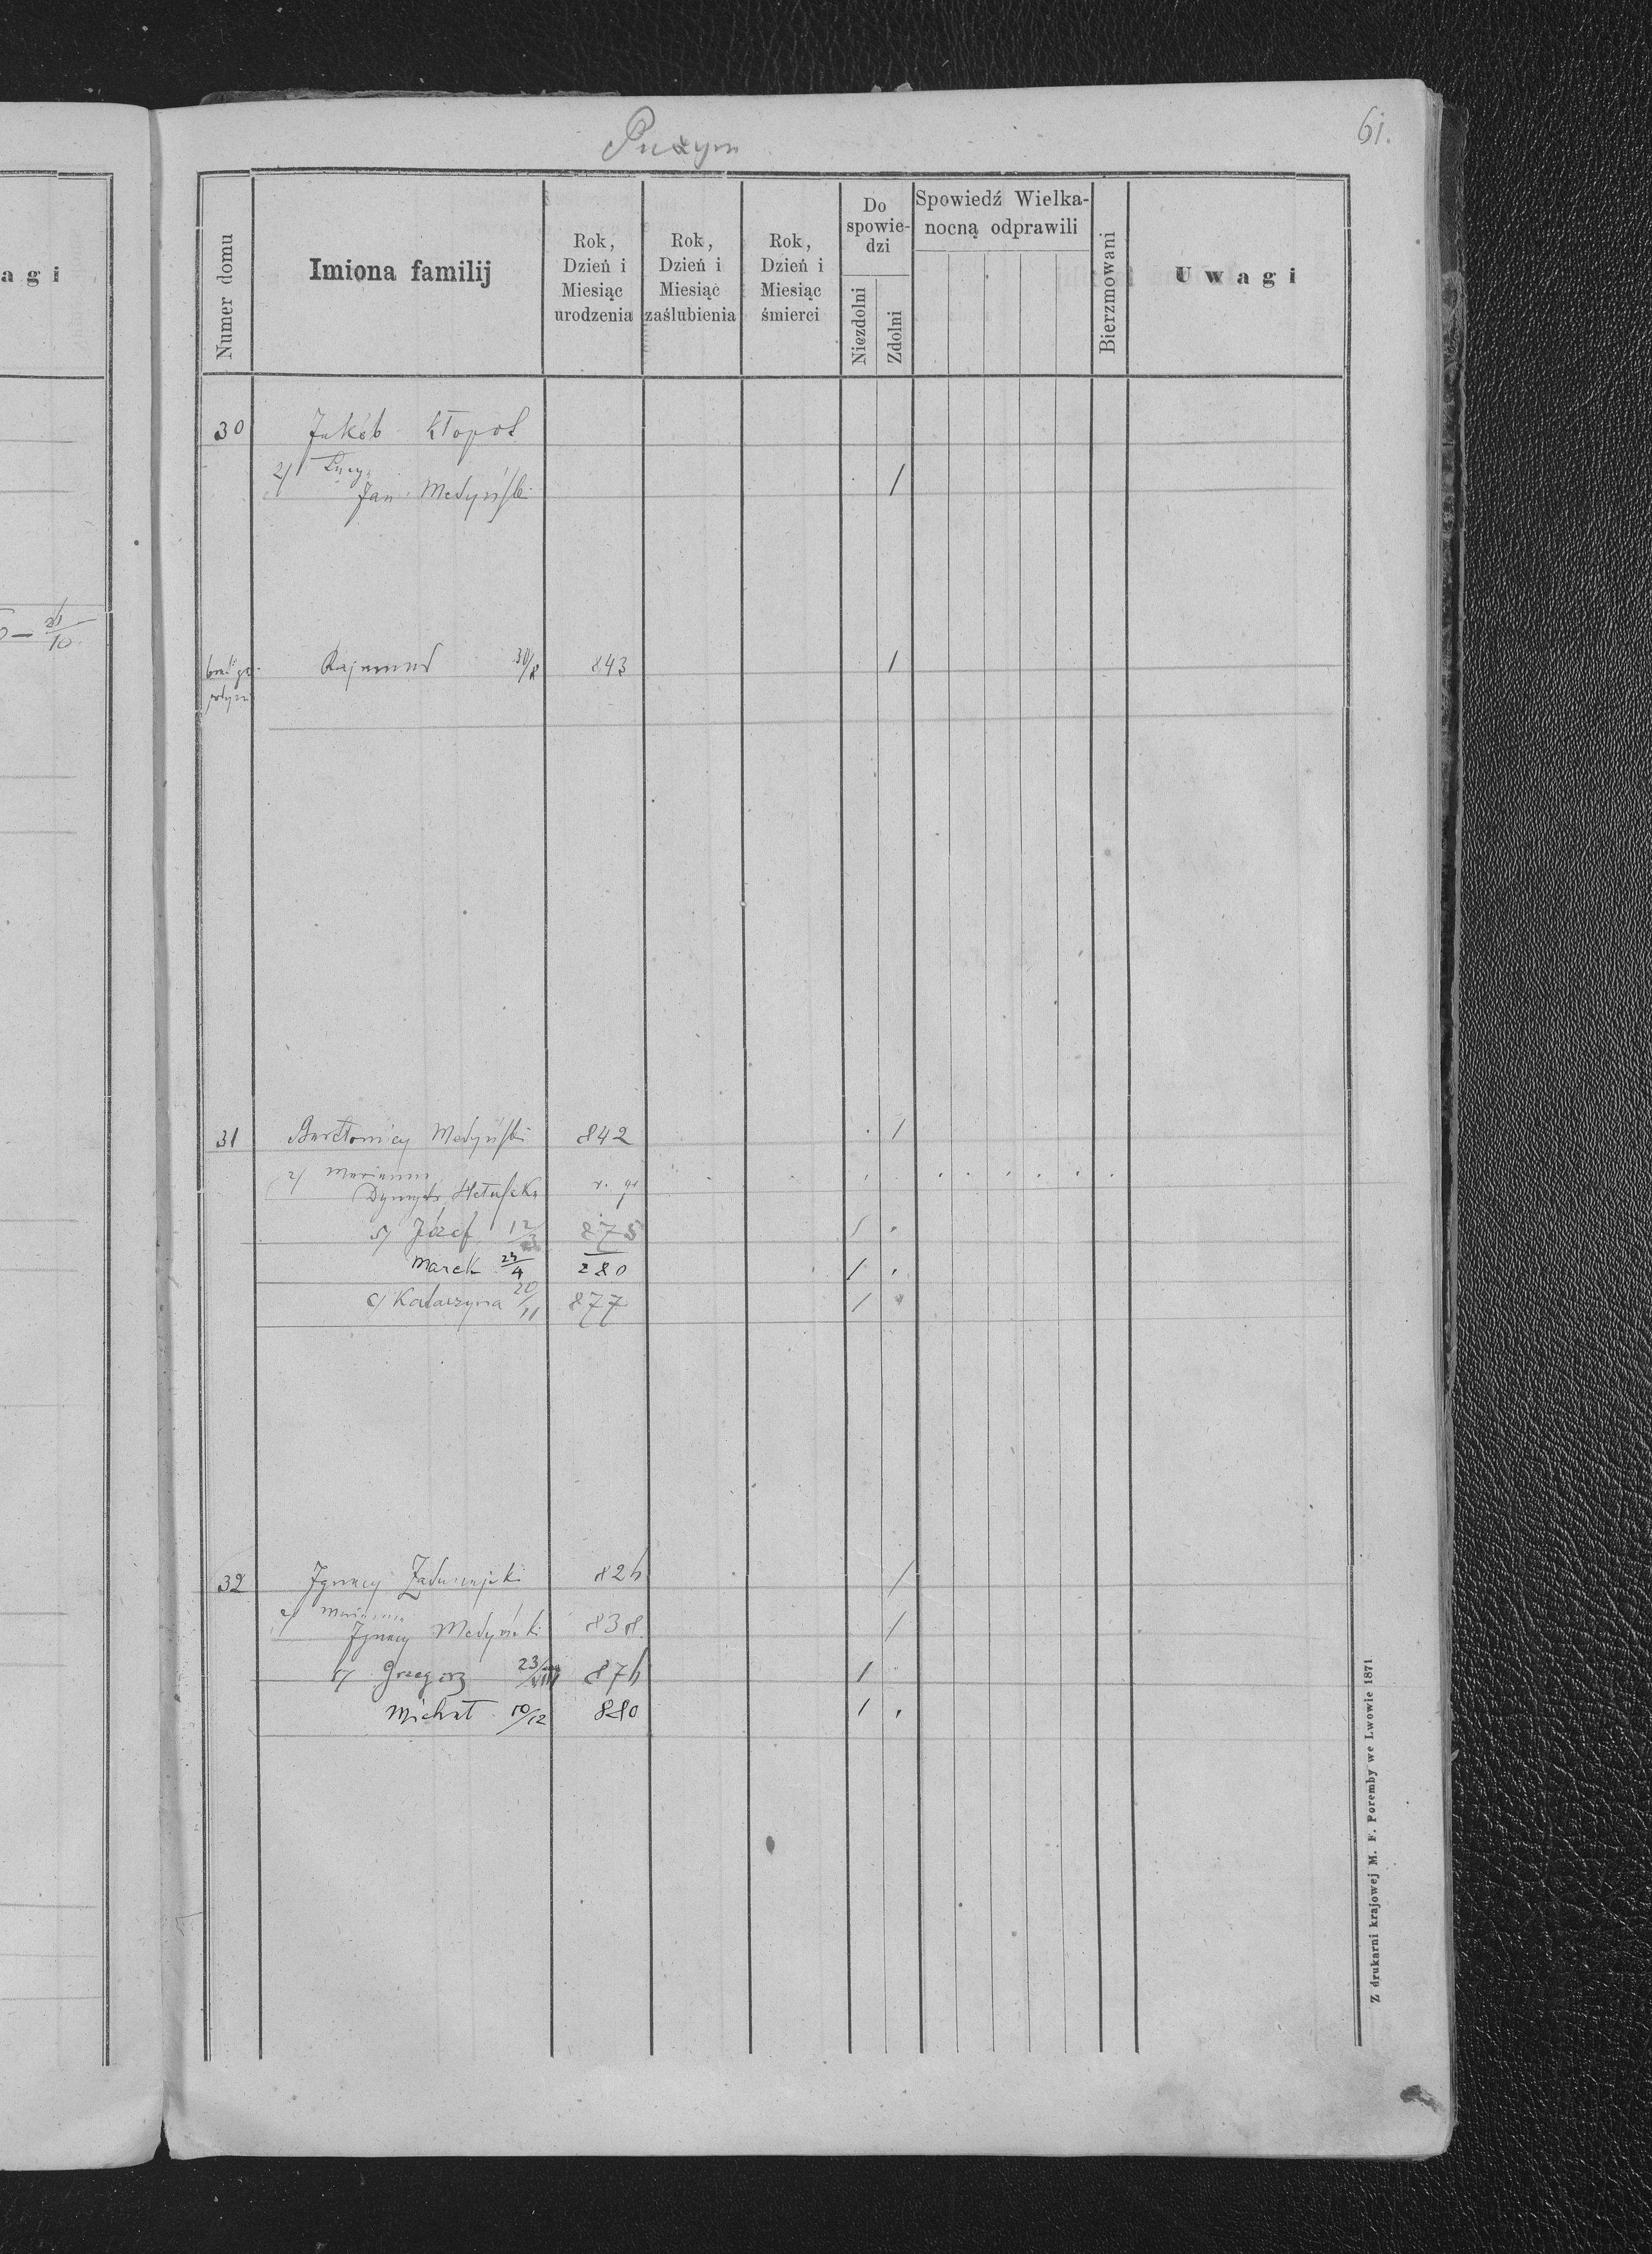 61.
Pużym
agi
Numer domu
Imiona familij
Rok, Dzień i Miesiąc urodzenia
Rok, Dzień i Miesiąc zaślubienia
Rok, Dzień i Miesiąc śmierci
Do spowiedzi
Niezdolni
Zdolni
Spowiedź Wielka-
nocną odprawili
Bierzmowani
Uwagi
30 Jakób Kłopot
2/ Łucya
Jan Medyński /
Rajmund 30/8 843 /
31 Bartłomiej Medyński 842 /
2/ Marianna
Dymytr r. gr
s/ Józef 12/3 875 /
Marek 23/4 880 /
c/ Katarzyna 20/11 877 /
32 Ignacy 82h /
2/ Marianna
Ignacy Medyński 838 /
s/ Grzegorz 23/VIII 87h /
Michał 10/12 880 /
Z drukarni krajowej M. F. Poremby we Lwowie 1871